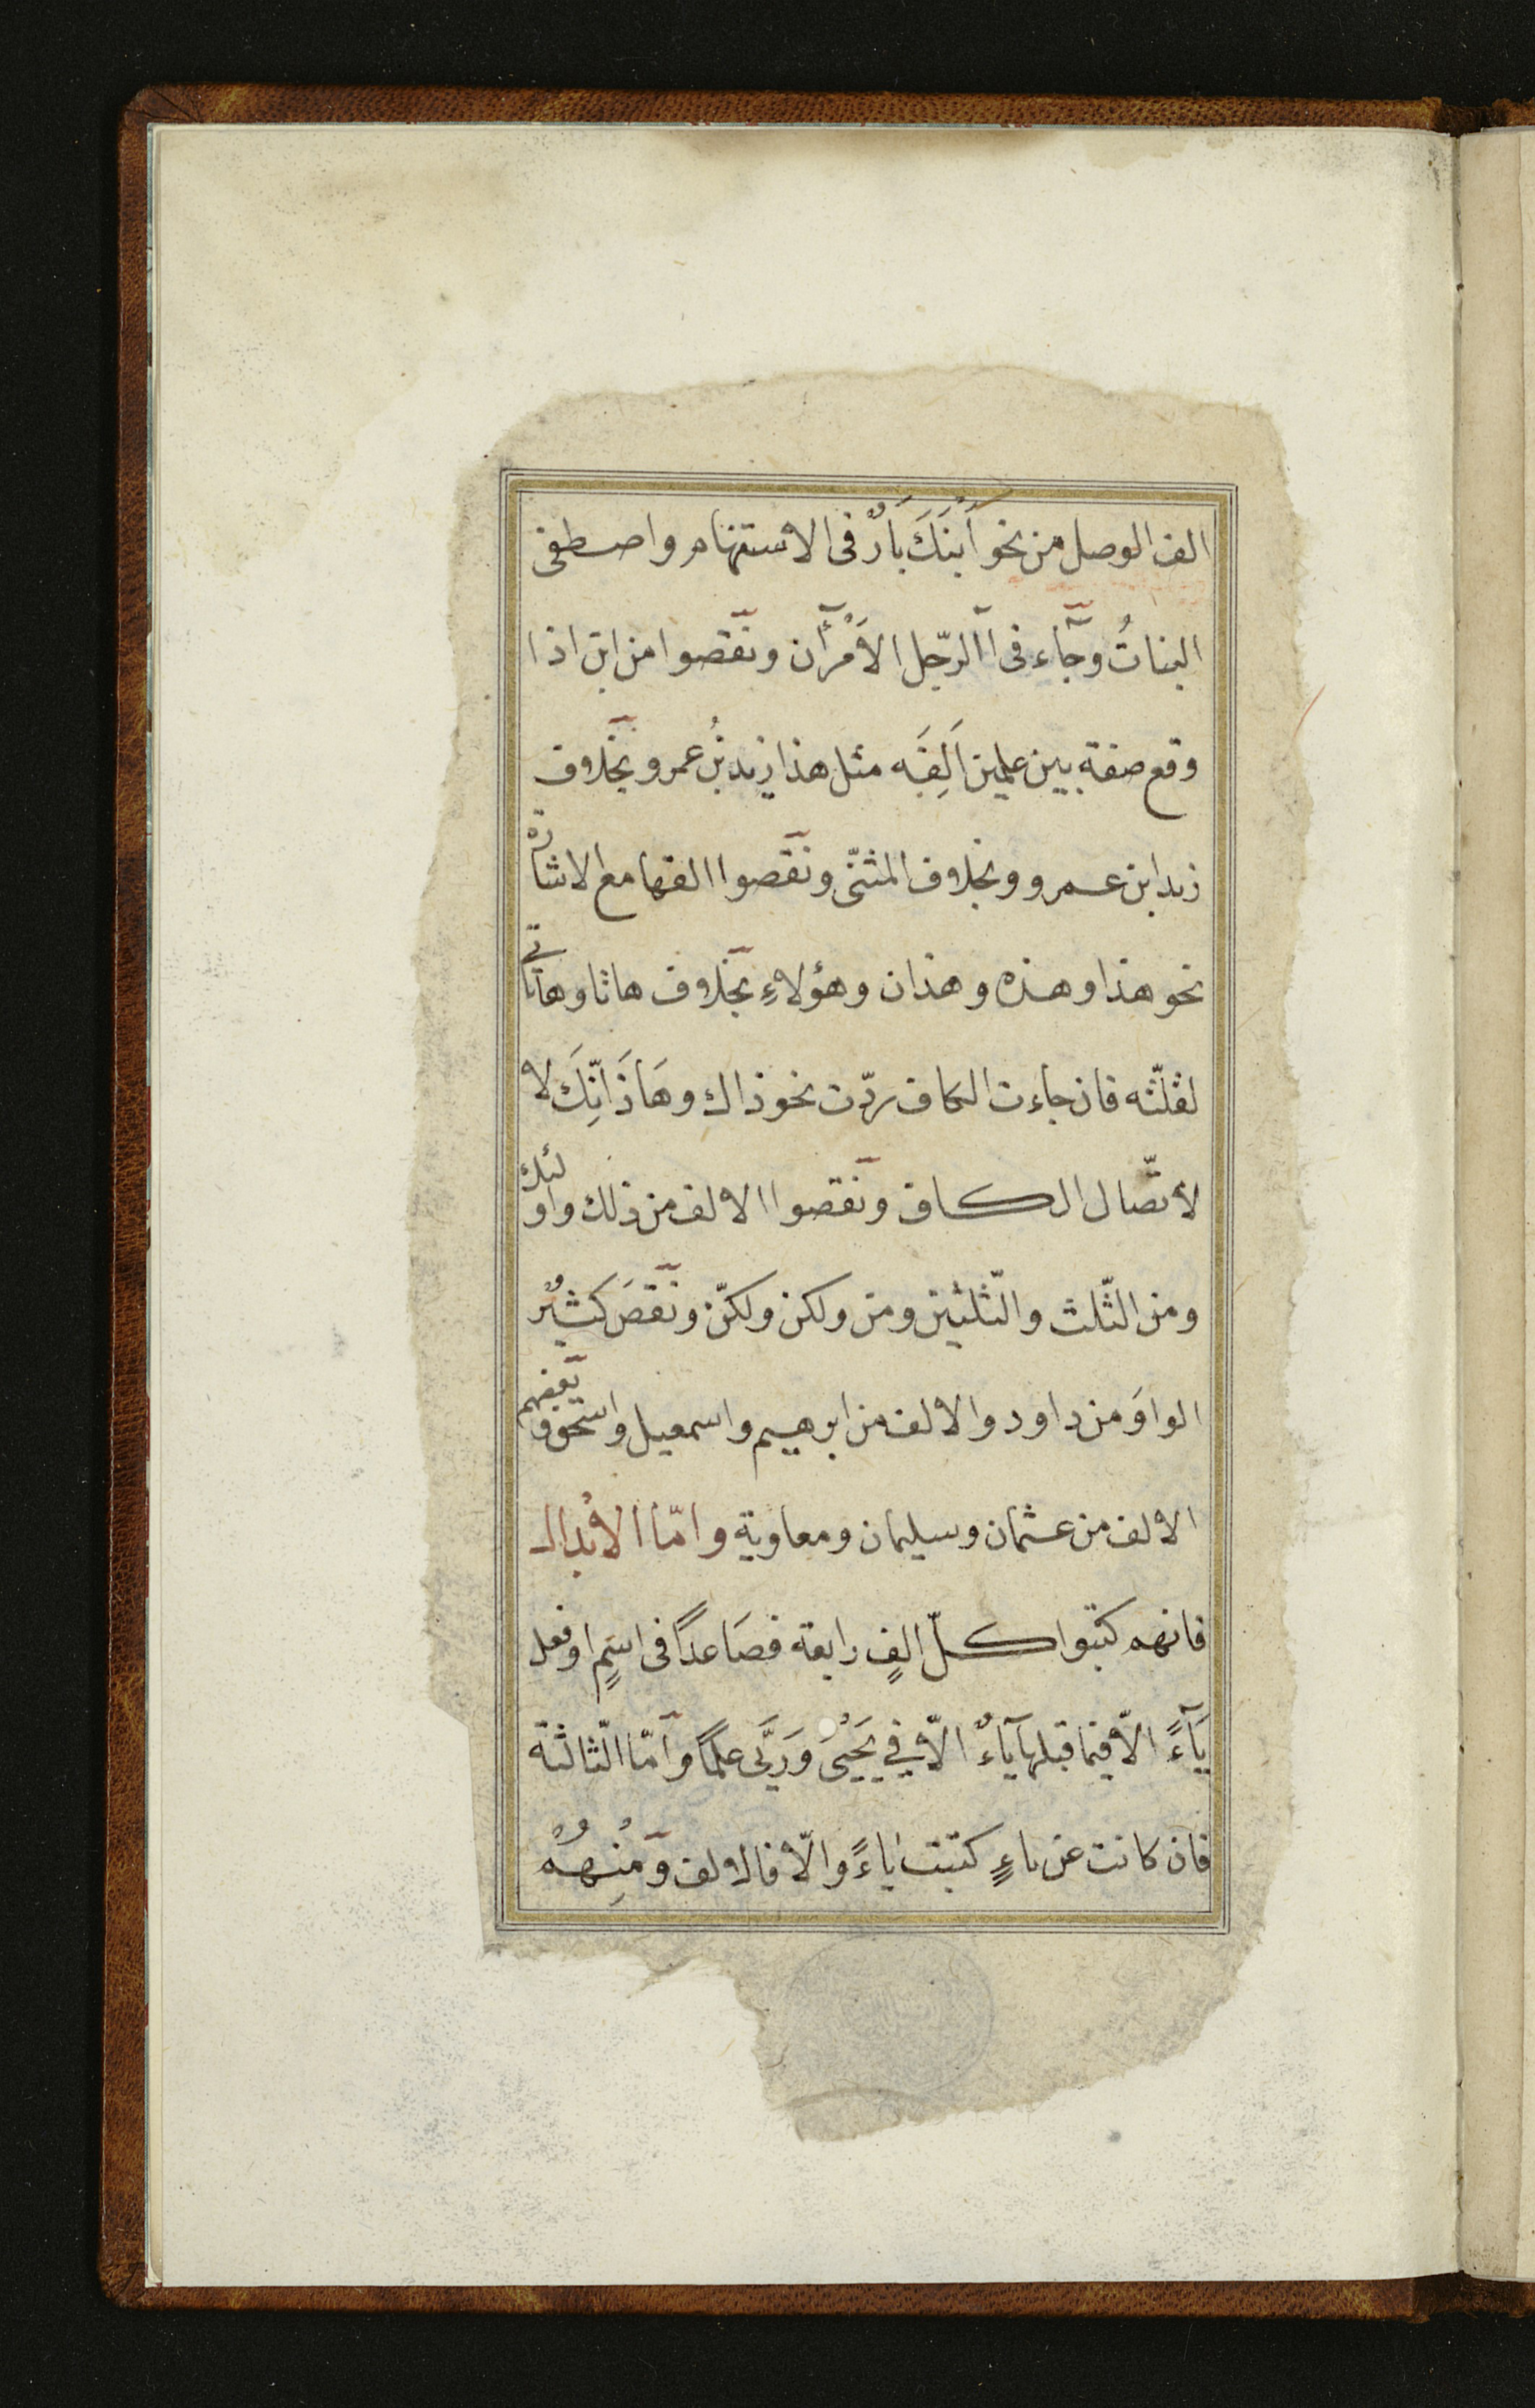 الف الوصل من نحو اَبْنُكَ بَارٌّ فى الاستفهام واصطفى
البناتُ وجآء فى أالرّجل الاَمْرأن ونقصوا من ابن اذا
وقع صفة بين علمين اَلِفَه مثل هذا زيد بنُ عمرو بخلاف
زيد ابن عمرو وبخلاف المثنّى ونقصوا الفها مع الاشارة
نحو هذا وهذه وهذان وهؤلاءِ بخلاف هاتا وهاتى
لقلّته فان جاءت الكاف ردّت نحو ذاك وهَاذَانِّكَ لا
لاتّصال الكاف ونقصوا الالف من ذلك واولئك
ومن الثّلث والثّلثين ومن ولكن ولكنّ ونقصَ كثيْر
الواوَ من داود والالف من ابرهيم واسمعيل واسحق وبعضهم
الالف من عثمان وسليمان ومعاوية وامّا الابْدال
فانهم كتبوا كلّ الفٍ رابعة فصَاعدًا فى اسمٍ او فعل
يَآءً الّا فيما قبلها يآءٌ الّا في يَحْيىَ وَرَيّى علمًا وامّا الثّالثة
فان كانت عن ياءٍ كتبت ياءً والّا فالالف ومِنْهُمْ